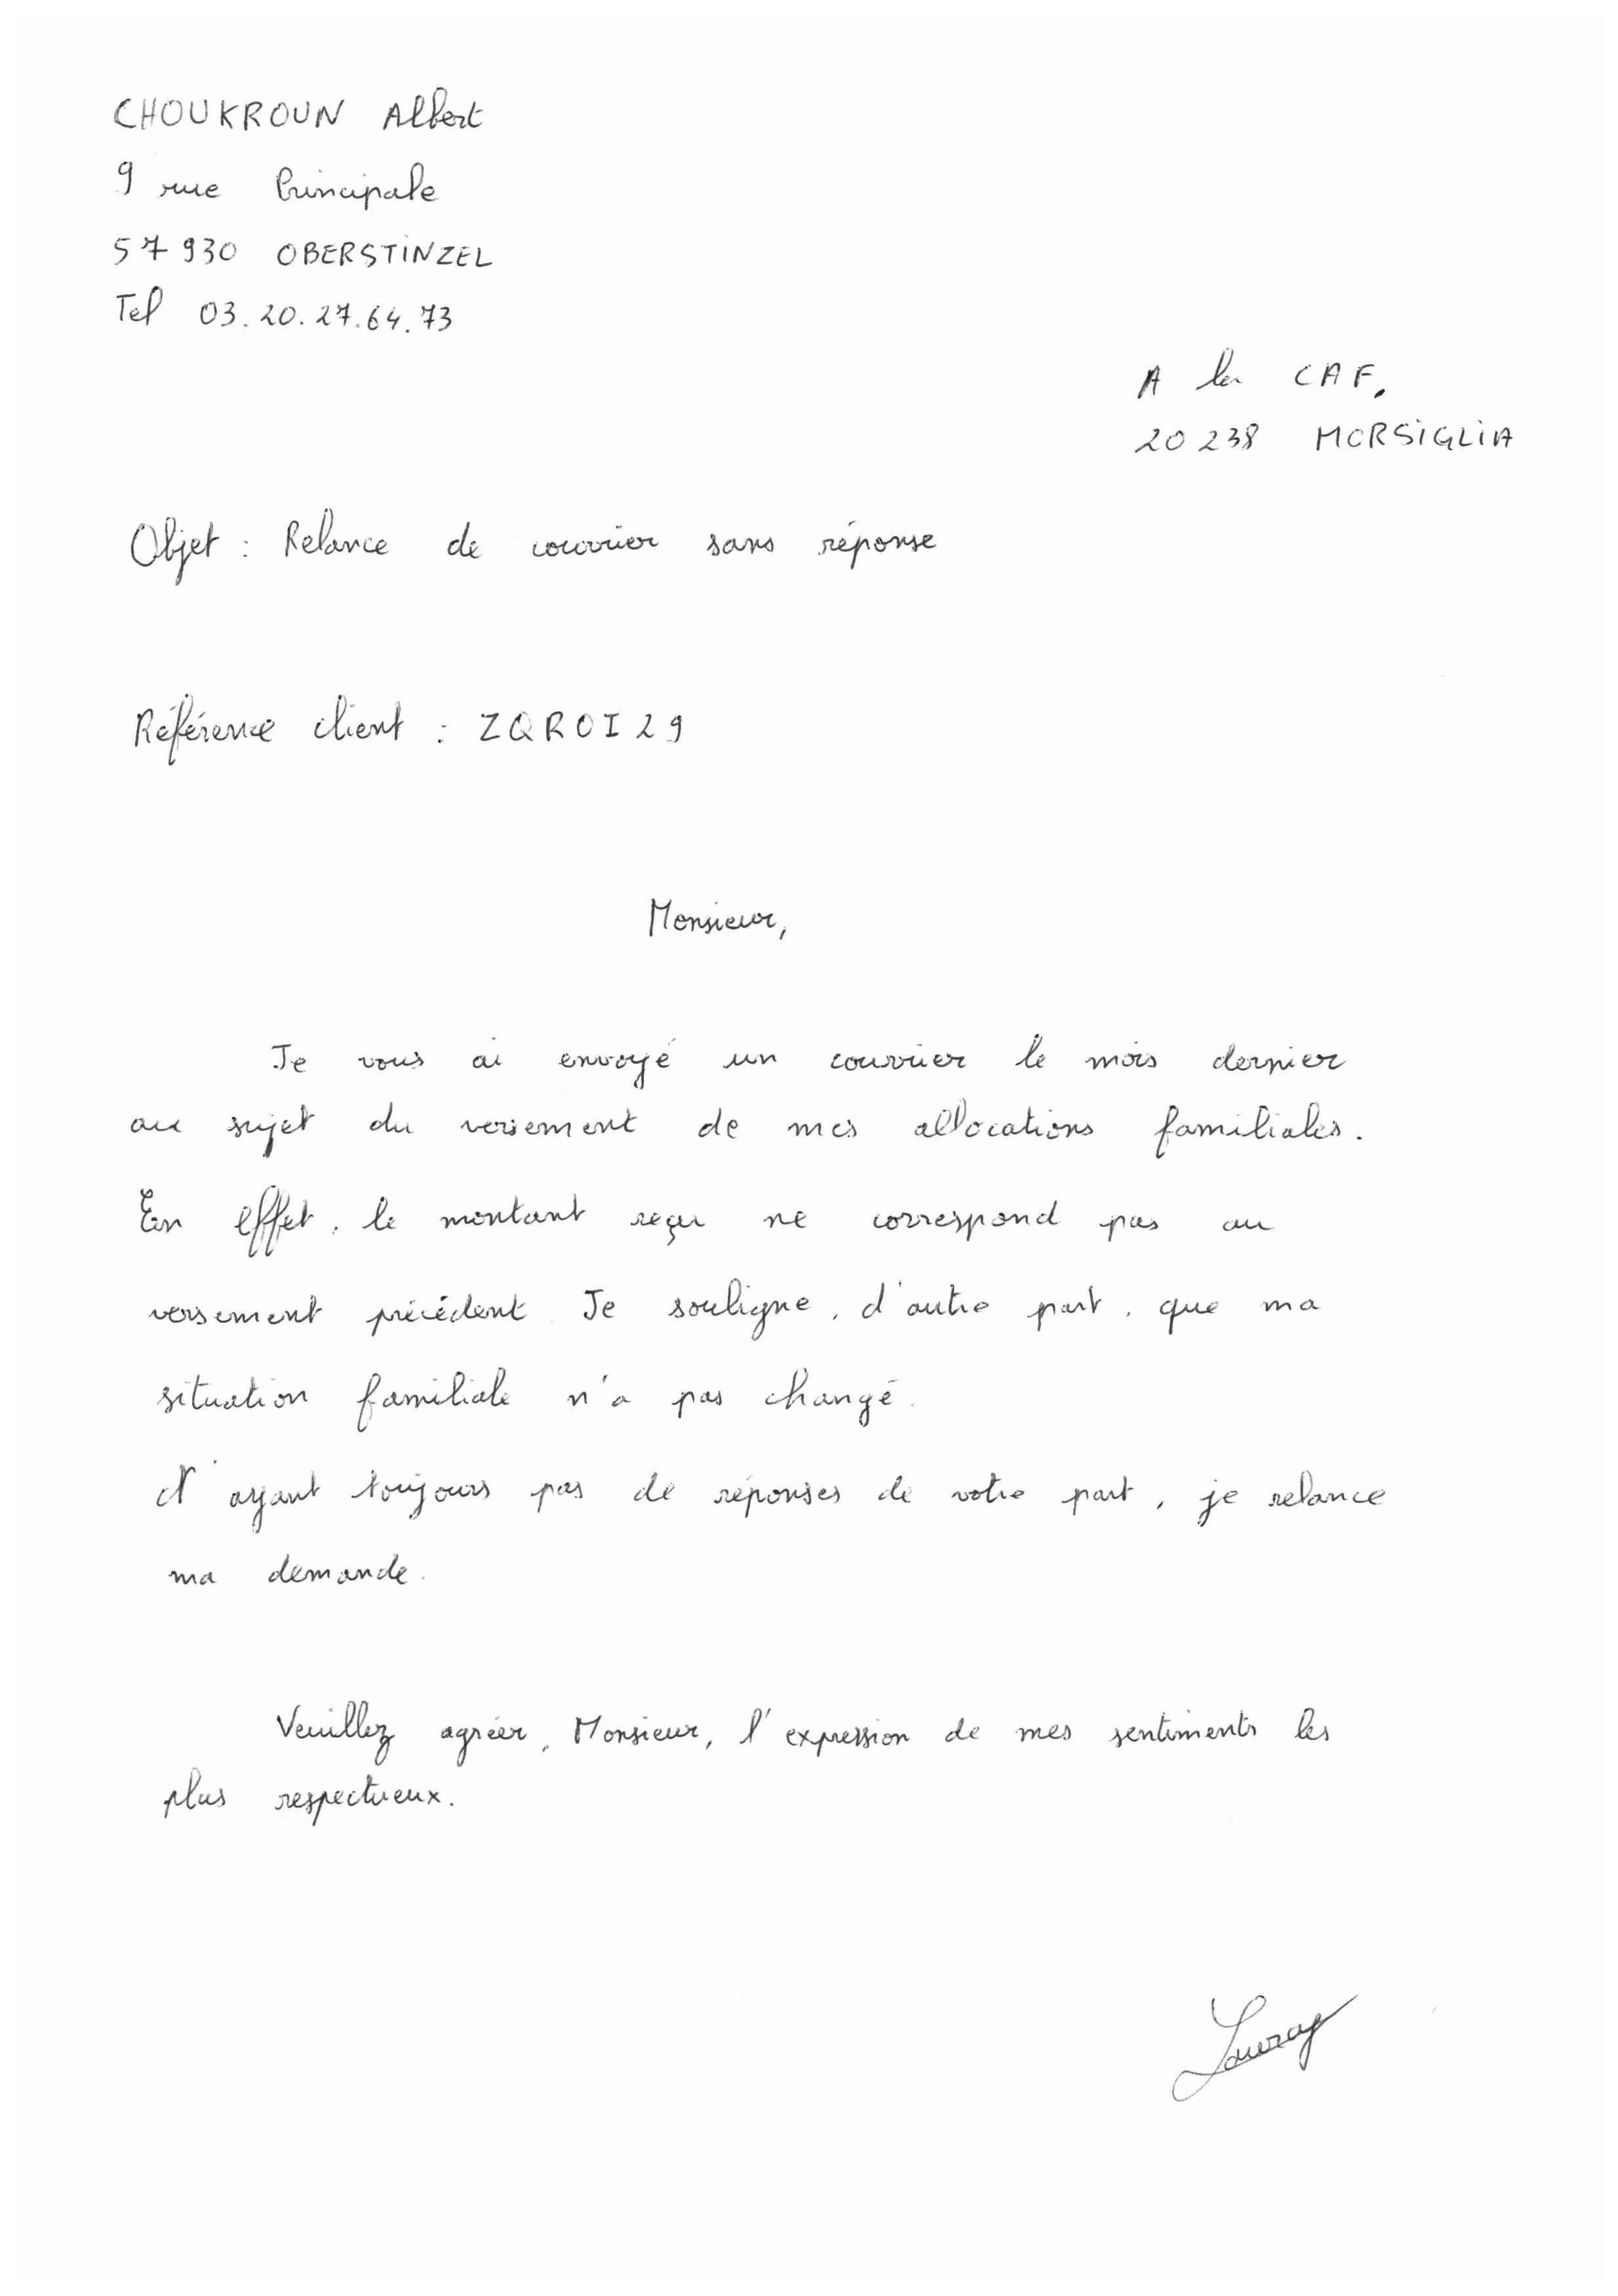 CHOUKROUN Albert
9 rue Principale
57930 OBERSTINZEL
Tel 03.20.27.64.73
A la CAF.
20238 MORSIGLIA
Objet : Relance de courrier sans réponse
Référence client : ZQROI29
Monsieur,
Je vous ai envoyé un courrier le mois dernier
au sujet du versement de mes allocations familiales.
En effet, le montant reçu ne correspond pas au
versement précédent. Je souligne, d'autre part, que ma
situation familiale n'a pas changé.
N'ayant toujours pas de réponses de votre part, je relance
ma demande.
Veuillez agréer, Monsieur, l'expression de mes sentiments les
plus respectueux.